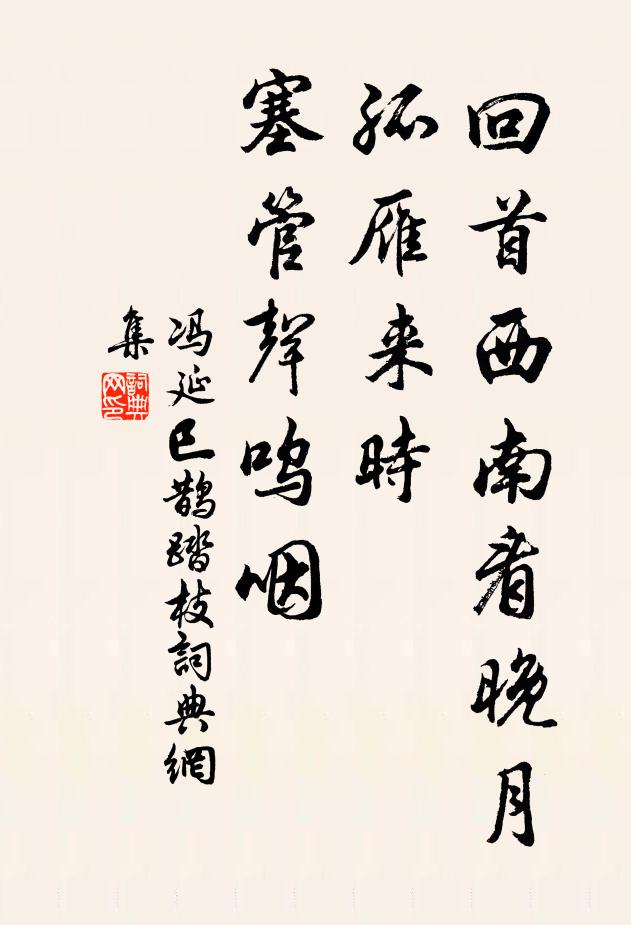 回首西南看晚月
孤雁来時
塞管聲呜咽
冯延巳鹊踏枝詞典網
集
詞典
网印